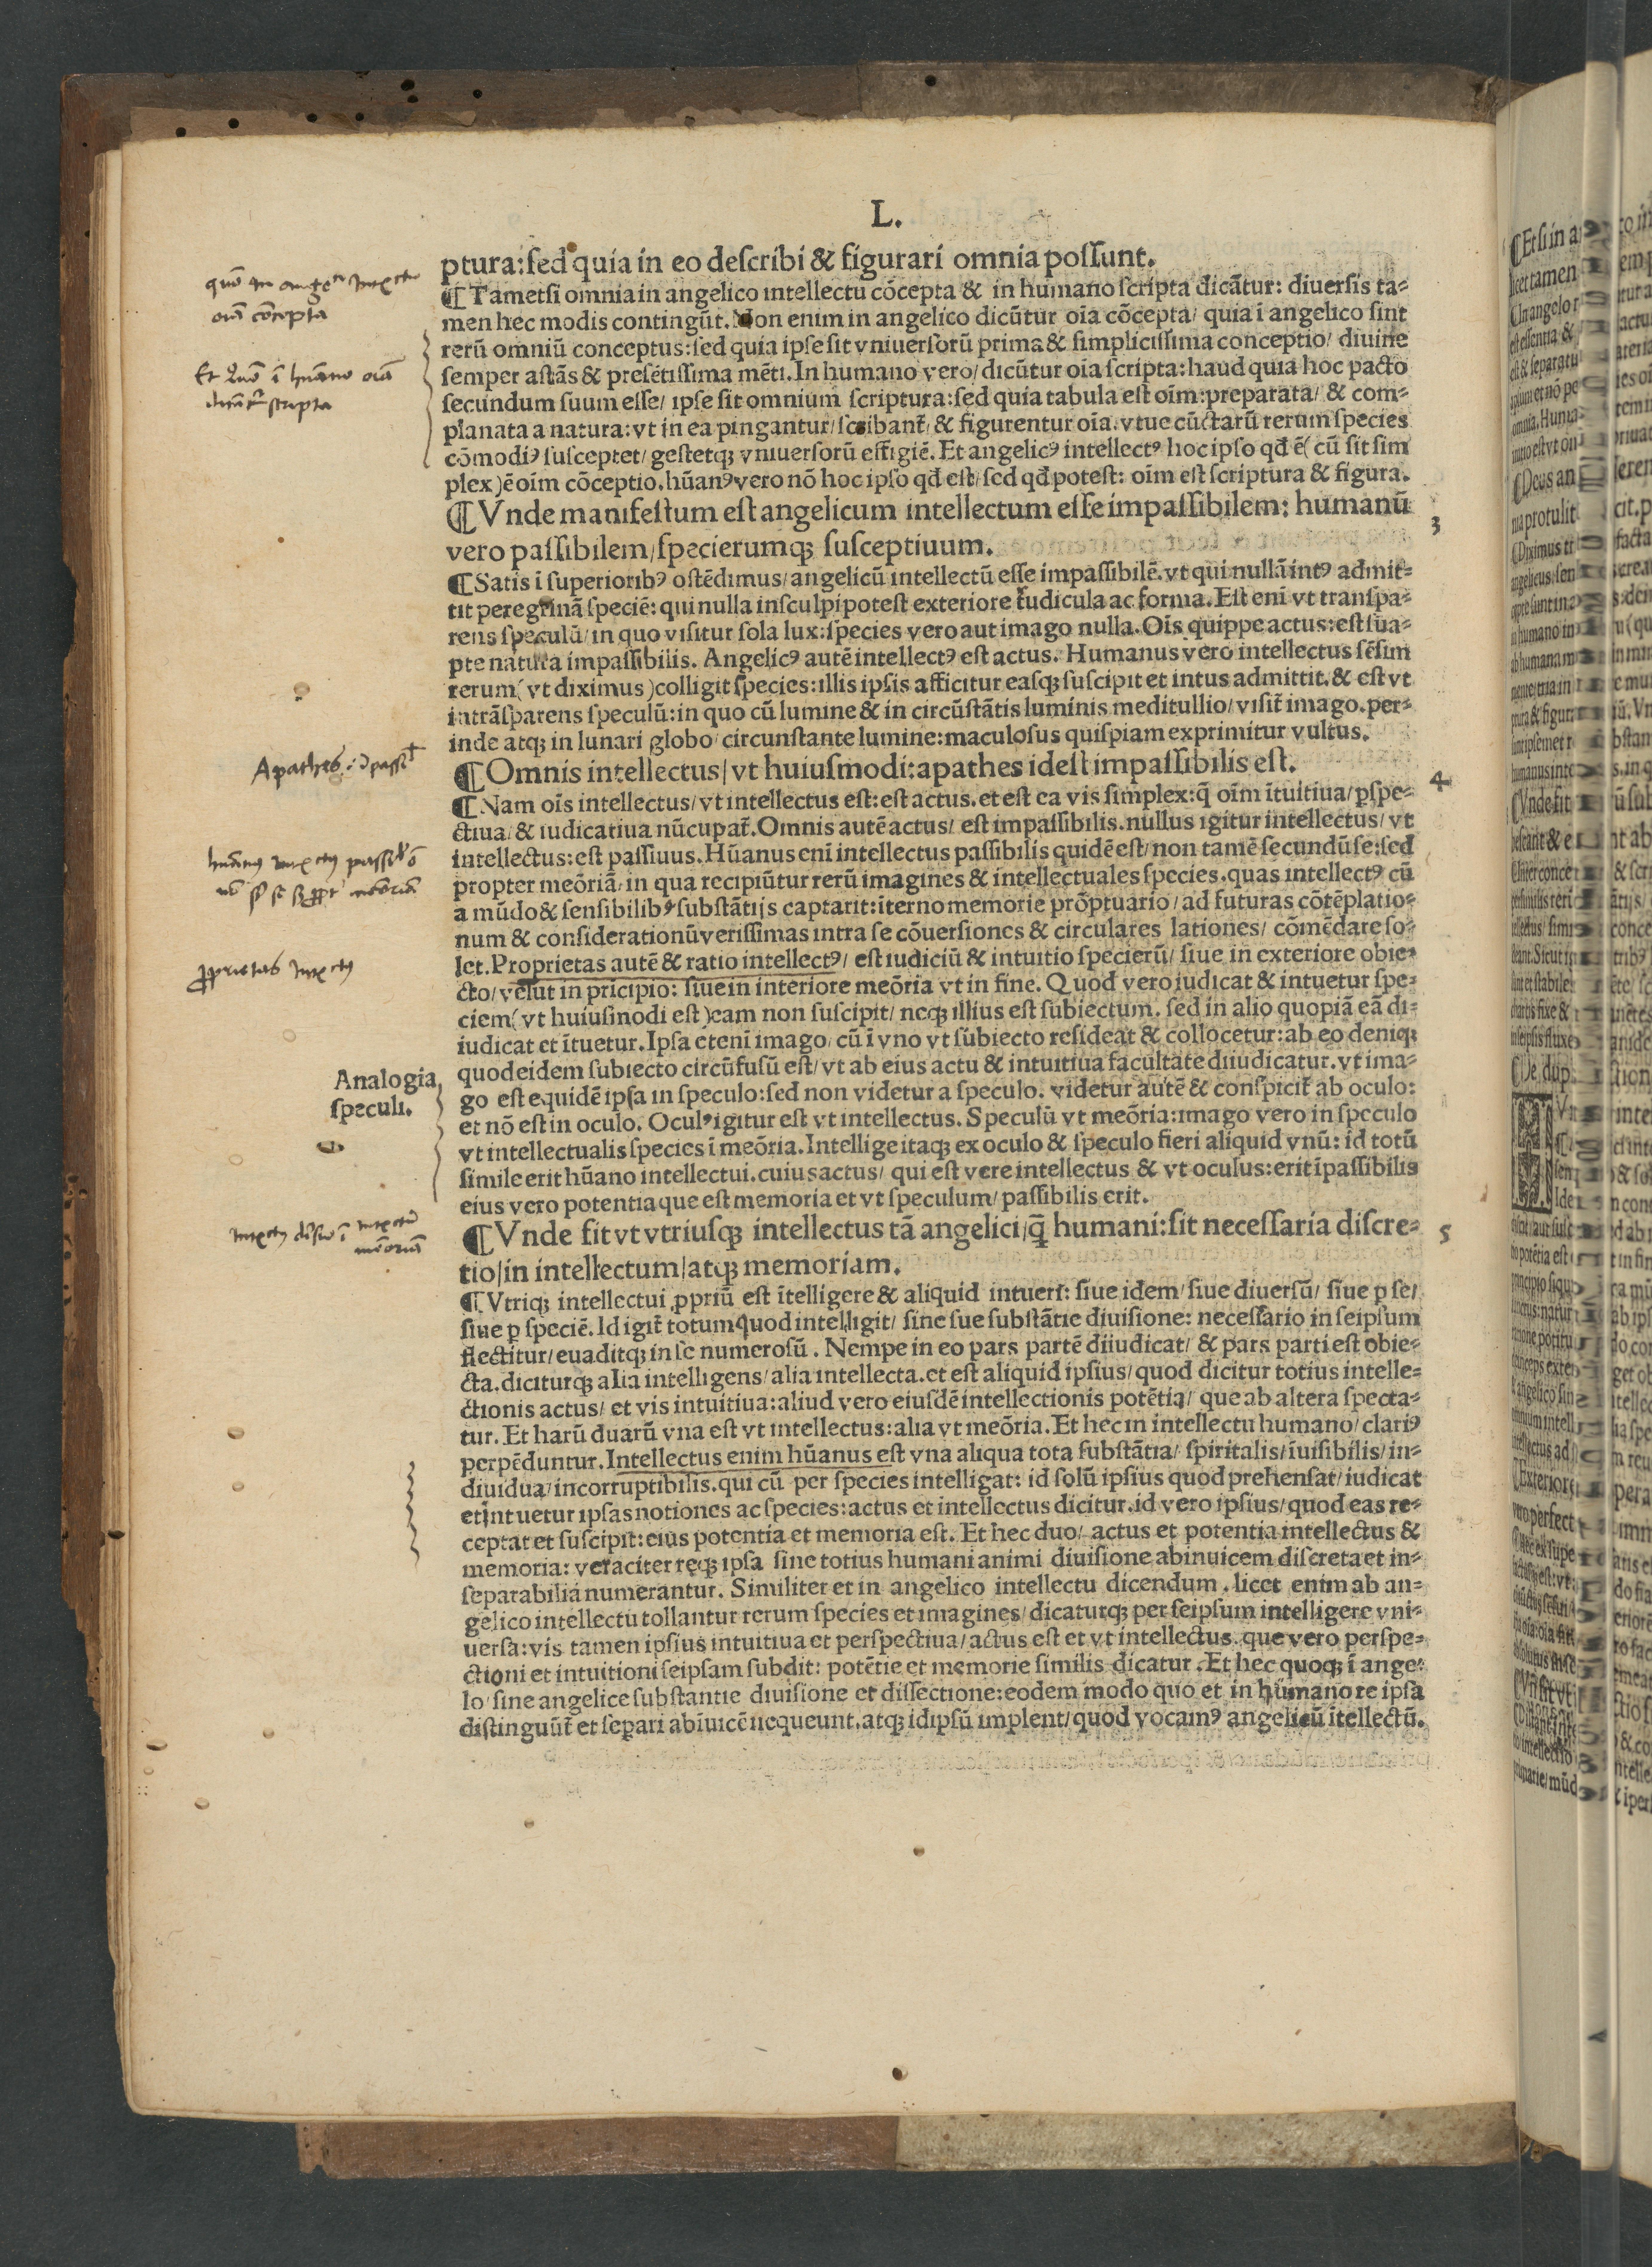 L.
ptura:sed quia in eo describi & figurari omnia possunt.
¶Tametsi omnia in angelico intellectu cõcepta & in humano scripta dicãtur: diuersis ta=
men hec modis contingũt. Non enim in angelico dicũtur oĩa cõcepta/ quia ĩ angelico sint
rerũ omniũ conceptus:sed quia ipse sit vniuersorũ prima & simplicissima conceptio/ diuine
semper astãs & presẽtissima mẽti. In humano vero/ dicũtur oĩa scripta:haud quia hoc pacto
secundum suum esse/ ipse sit omnium scriptura:sed quia tabula est oĩm:preparata/ & com=
planata a natura:vt in ea pingantur/ scribant̃/ & figurentur oĩa. vtue cũctarũ rerum species
cõmodiꝰ susceptet/ gestetqꝫ vniuersorũ effigiẽ. Et angelicꝰ intellectꝰ hoc ipso qđ ẽ( cũ sit sim
plex )ẽ oĩm cõceptio. hũanꝰ vero nõ hoc ipso qđ est/ sed qđ potest: oĩm est scriptura & figura.
¶Vnde manifestum est angelicum intellectum esse impassibilem: humanũ
3
vero passibilem/specierumqꝫ susceptiuum.
¶Satis ĩ superioribꝰ ostẽdimus/ angelicũ intellectũ esse impassibilẽ. vt qui nullã intꝰ admit=
tit peregrinã speciẽ: qui nulla insculpi potest exteriore t̃udicula ac forma. Est eni vt transpa=
rens speculũ/ in quo visitur sola lux:species vero aut imago nulla. Oĩs quippe actus:est sua=
pte natura impassibilis. Angelicꝰ autẽ intellectꝰ est actus. Humanus vero intellectus sẽsim
rerum( vt diximus )colligit species:illis ipsis afficitur easqꝫ suscipit et intus admittit. & est vt
intrãsparens speculũ:in quo cũ lumine & in circũstãtis luminis meditullio/ visit̃ imago. per=
inde atqꝫ in lunari globo/ circunstante lumine:maculosus quispiam exprimitur vultus.
¶Omnis intellectus/ vt huiusmodi:apathes idest impassibilis est.
4
¶Nam oĩs intellectus/ vt intellectus est:est actus. et est ea vis simplex:q̃ oĩm ĩtuitiua/ ꝑspe=
ctiua/ & iudicatiua nũcupat̃. Omnis autẽ actus/ est impassibilis. nullus igitur intellectus/ vt
intellectus:est passiuus. Hũanus enĩ intellectus passibilis quidẽ est/ non tamẽ secundũ se:sed
propter meõriã/ in qua recipiũtur rerũ imagines & intellectuales species. quas intellectꝰ cũ
a mũdo & sensibilibꝰ substãtijs captarit:ĩterno memorie prõptuario/ ad futuras cõtẽplatio=
num & considerationũ verissimas intra se cõuersiones & circulares lationes/ cõmẽdare so=
let. Proprietas autẽ & ratio intellectꝰ/ est iudiciũ & intuitio specierũ/ siue in exteriore obie=
cto/ velut in prĩcipio: siue in interiore meõria vt in fine. Quod vero iudicat & intuetur spe=
ciem( vt huiusmodi est )eam non suscipit/ neqꝫ illius est subiectum. sed in alio quopiã eã di=
iudicat et ĩtuetur. Ipsa etenĩ imago/ cũ ĩ vno vt subiecto resideat & collocetur:ab eo deniqꝫ
quod eidem subiecto circũfusũ est/ vt ab eius actu & intuitiua facultate diiudicatur. vt ima=
Analogia
speculi.
go est equidẽ ipsa in speculo:sed non videtur a speculo. videtur autẽ & conspicit̃ ab oculo:
et nõ est in oculo. Oculꝰ igitur est vt intellectus. Speculũ vt meõria:imago vero in speculo
vt intellectualis species ĩ meõria. Intellige itaqꝫ ex oculo & speculo fieri aliquid vnũ: id totũ
simile erit hũano intellectui. cuius actus/ qui est vere intellectus & vt oculus:erit ĩpassibilis
eius vero potentia que est memoria et vt speculum/ passibilis erit.
¶Vnde fit vt vtriusqꝫ intellectus tã angelici/q̃ humani:sit necessaria discre=
5
tio/in intellectum/atqꝫ memoriam.
¶Vtriqꝫ intellectui ꝓpriũ est ĩtelligere & aliquid intueri: siue idem/ siue diuersũ/ siue ꝑ se/
siue ꝑ speciẽ. Id igit̃ totum quod intelligit/ sine sue substãtie diuisione: necessario in seipsum
flectitur/ euaditqꝫ in se numerosũ. Nempe in eo pars partẽ diiudicat/ & pars parti est obie=
cta. diciturqꝫ alia intelligens/ alia intellecta. et est aliquid ipsius/ quod dicitur totius intelle=
ctionis actus/ et vis intuitiua:aliud vero eiusdẽ intellectionis potẽtia/ que ab altera specta=
tur. Et harũ duarũ vna est vt intellectus:alia vt meõria. Et hec in intellectu humano/ clariꝰ
perpẽduntur. Intellectus enim hũanus est vna aliqua tota substãtia/ spiritalis/ ĩuisibilis/ in=
diuidua/ incorruptibilis. qui cũ per species intelligat: id solũ ipsius quod prehensat/ iudicat
et intuetur ipsas notiones ac species:actus et intellectus dicitur. id vero ipsius/ quod eas re=
ceptat et suscipit:eius potentia et memoria est. Et hec duo/ actus et potentia intellectus &
memoria: veraciter reqꝫ ipsa sine totius humani animi diuisione abinuicem discreta et in=
separabilia numerantur. Similiter et in angelico intellectu dicendum. licet enim ab an=
gelico intellectu tollantur rerum species et imagines/ dicaturqꝫ per seipsum intelligere vni=
uersa:vis tamen ipsius intuitiua et perspectiua/ actus est et vt intellectus. que vero perspe=
ctioni et intuitioni seipsam subdit: potẽtie et memorie similis dicatur. Et hec quoqꝫ ĩ ange=
lo/ sine angelice substantie diuisione et dissectione:eodem modo quo et in humano re ipsa
distinguũt̃ et separi abĩuicẽ nequeunt. atqꝫ idipsũ implent/ quod vocamꝰ angelicũ ĩtellectũ.